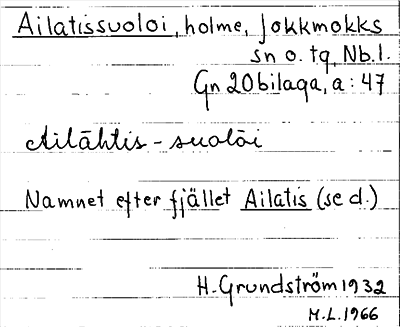 Ailatissuoloi, holme, Jokkmokks
sn o. tg, Nb.l.
Gn 20 bilaga, a: 47
Ailāhtis - suolōi
Namnet efter fjället Ailatis (se d.)
H. Grundström 1932
M.L. 1966